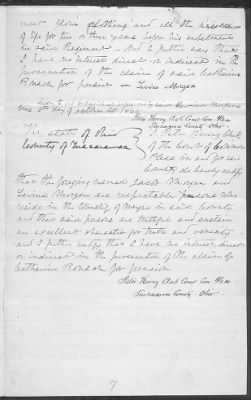 meat, clothing and all the necessaries
of life for two or three years before his enlistment
in said Regiment — And I further say that
I have no interest direct or indirect in the
prosecution of the claim of said Catharine
for pension — Lewis Morgan
this day of October AD
Peter Henry Clerk Court Com Pleas
County Ohio
The State of Ohio
County of
Peter Henry Clerk
of the Court of Common
Pleas in and for said
County do hereby certify
that the foregoing named Jacob Morgan and
Lewis Morgan are respectable persons who
reside in the township of in said County
and that said persons are truthful and sustain
an excellent character for truth and veracity
and I further certify that I have no interest direct
or indirect in the prosecution of the claim of
Catharine for pension
Peter Henry Clerk Court Com Pleas
County Ohio
7